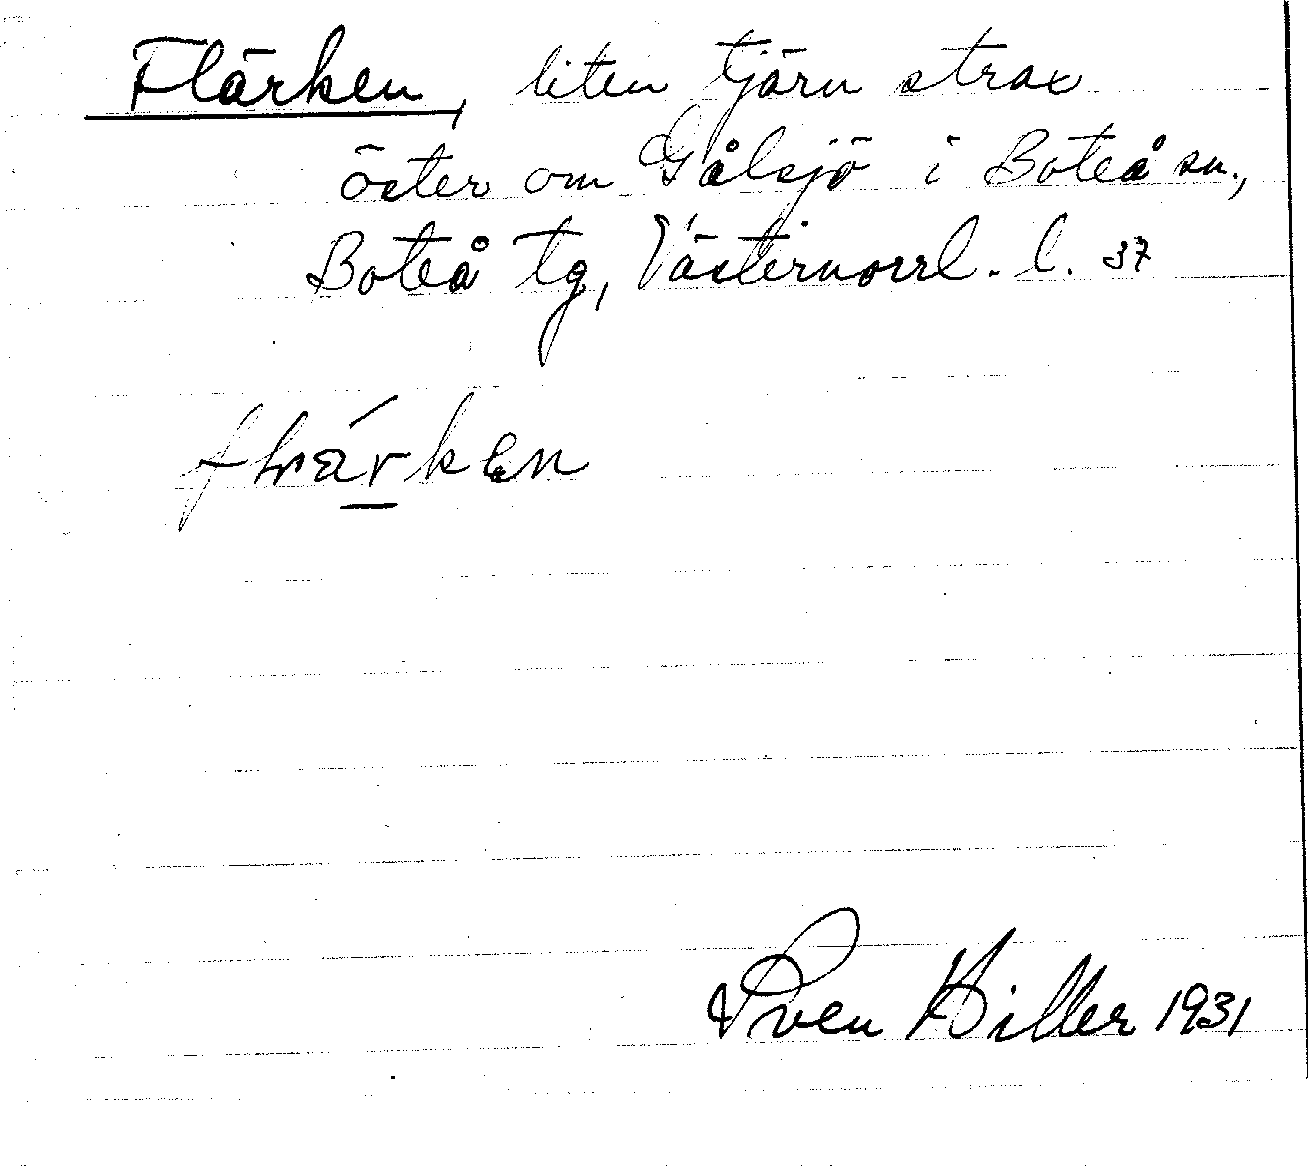 Flärken, liten tjärn strax
öster om Gålsjö i Boteå sn.,
Boteå tg, Västernorrl. l. 37
Sven Hiller 1931